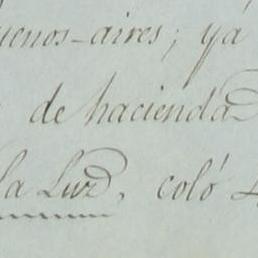 uenos-aires; ya
de hacienda
la Luz, coló